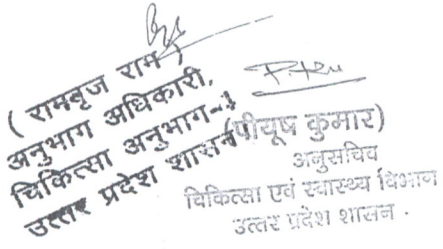 ( रामबृज राम )
अनुभाग अधिकारी,
चिकित्सा अनुभाग-1
उत्तर प्रदेश शासन
(पीयूष कुमार)
अनुसचिव
चिकित्सा एवं स्वास्थ्य विभाग
उत्तर प्रदेश शासन .